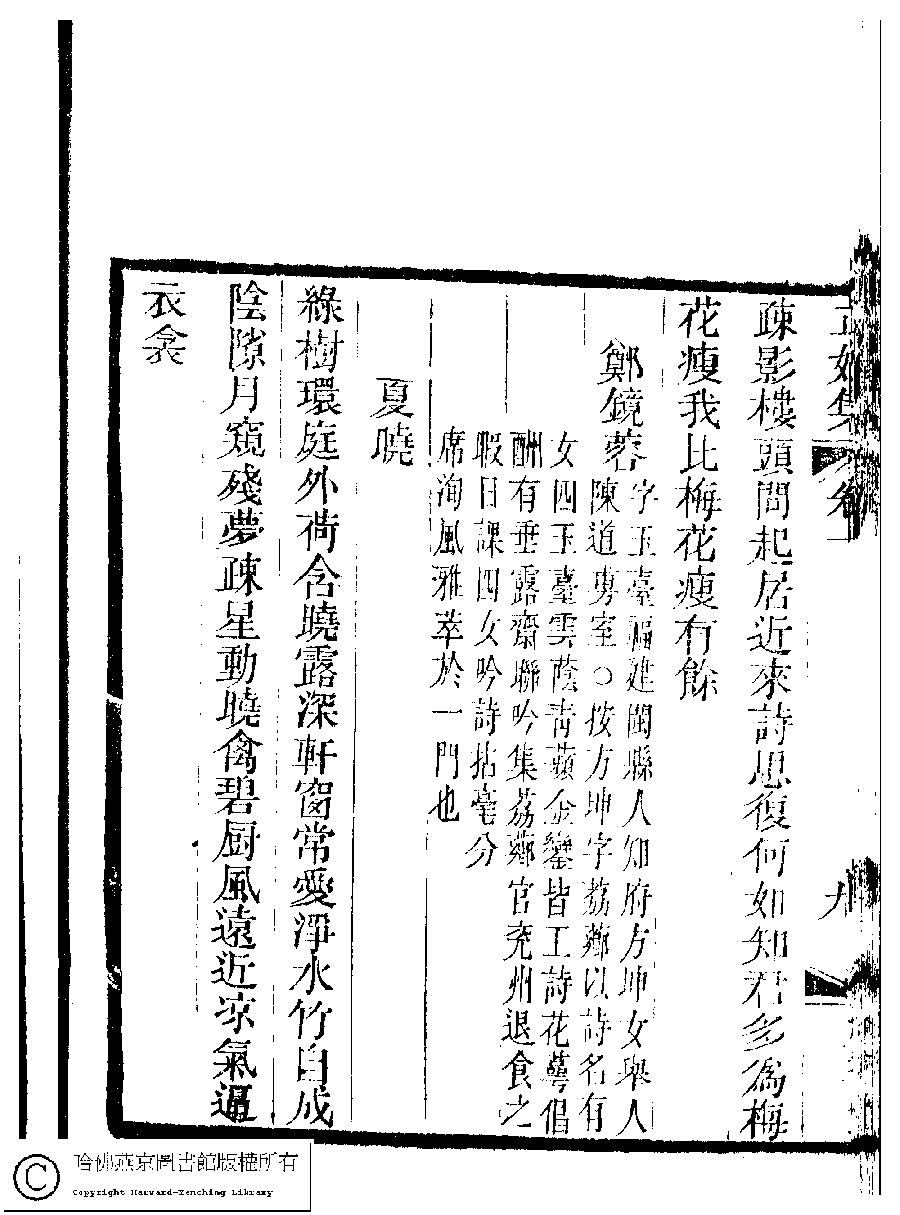 疎影樓頭問起居近來詩思復何如知君多爲梅
花瘦我比梅花瘦有餘
鄭鏡蓉
字玉臺福建閩縣人知府方坤女舉人
陳道旉室○按方坤字荔薌以詩名有
女四玉臺雲蔭青蘋金鑾皆工詩花萼倡
酬有垂露齋聯吟集荔薌官兖州退食之
暇日課四女吟詩拈毫分
席洵風雅萃於一門也
夏曉
綠樹環庭外荷含曉露深軒窗常愛淨水竹自成
陰隙月窺殘夢疎星動曉禽碧厨風遠近凉氣逼
衣衾
哈佛燕京圖書館版權所有
Copyright Harvard-Yenching Library